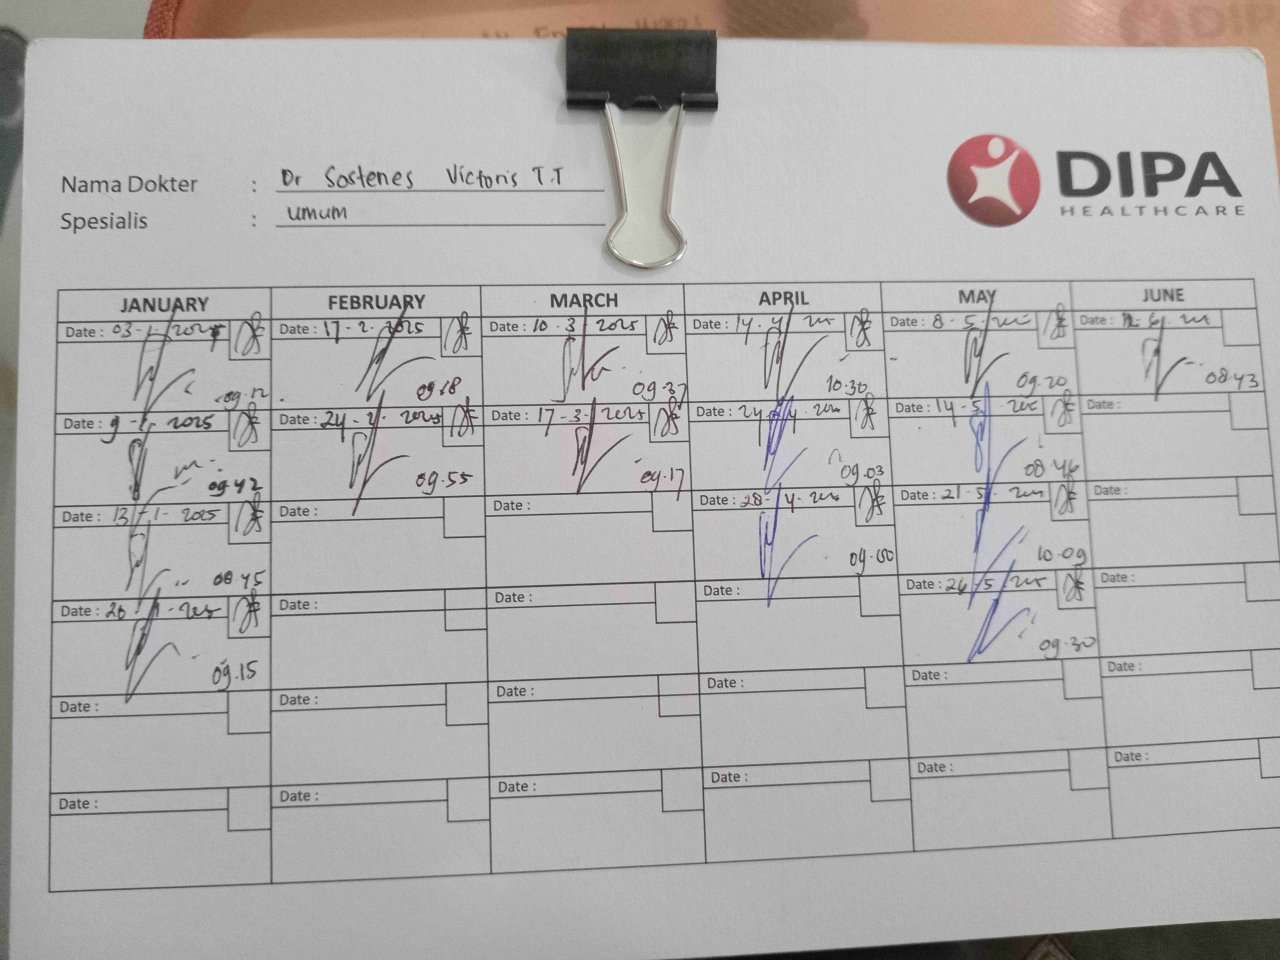 DIPA
HEALTHCARE
Nama Dokter : Dr Sostenes Victoris T.T
Spesialis : umum
JANUARY FEBRUARY MARCH APRIL MAY JUNE
Date : 03-1-2025 Date : 17-2-2025 Date : 10-3-2025 Date : 14-4- Date : 8-5- Date :
09.12 09.18 09.37 10.30 09.20 08.43
Date : 9-1-2025 Date : 24-2-2025 Date : 17-3-2025 Date : 24-4- Date : 14-5- Date :
09.42 09.55 09.17 09.03 08.46
Date : 13-1-2025 Date : Date : Date : 28-4- Date : 21-5- Date :
08.45 10.09
Date : Date : Date : Date : Date : 26-5- Date :
09.15 09.30
Date : Date : Date : Date : Date : Date :
Date : Date : Date : Date : Date : Date :